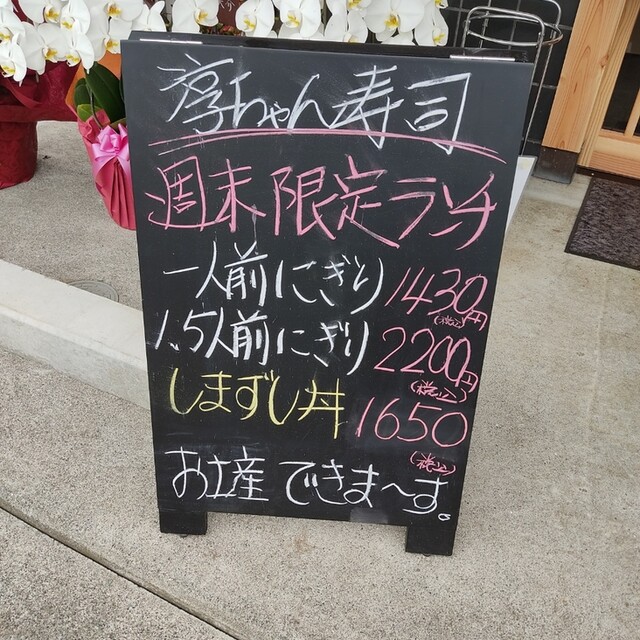 淳ちゃん寿司
週末限定ランチ
一人前にぎり 1430円
(税込)
1.5人前にぎり 2200円
(税込)
しまずし丼 1650
(税込)
お土産できま〜す。